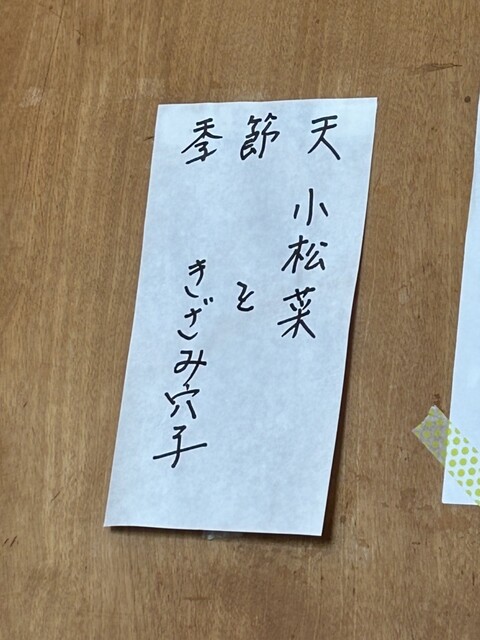 季節天
小松菜
と
きざみ穴子